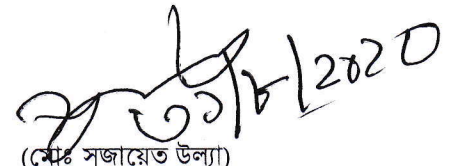 ৩১/৮/২০২০
(মোঃ সজায়েত উল্যা)